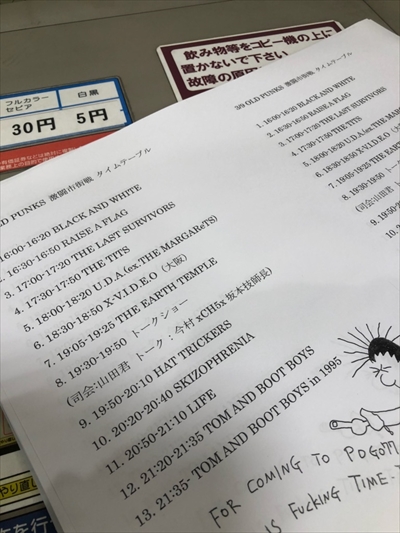 フルカラー
セピア
白黒
30円
5円
飲み物等をコピー機の上に
置かないで下さい
故障の原因
OLD PUNKS 激闘市街戦 タイムテーブル
16:00-16:20 BLACK AND WHITE
2. 16:30-16:50 RAISE A FLAG
3. 17:00-17:20 THE LAST SURVIVORS
4. 17:30-17:50 THE TITS
5. 18:00-18:20 U.D.A.(ex:THE MARGAReTS)
6. 18:30-18:50 X-V.I.D.E.O (大阪)
7. 19:05-19:25 THE EARTH TEMPLE
8. 19:30-19:50 トークショー
(司会:山田君 トーク:今村 xCH5x 坂本技師長)
9. 19:50-20:10 HAT TRICKERS
10. 20:20-20:40 SKIZOPHRENIA
11. 20:50-21:10 LIFE
12. 21:20-21:35 TOM AND BOOT BOYS
13. 21:35- TOM AND BOOT BOYS in 1995
FOR COMING TO POGO
IS FUCKING TIME.
3/9 OLD PUNKS 激闘市街戦 タイムテーブル
1. 16:00-16:20 BLACK AND WHITE
2. 16:30-16:50 RAISE A FLAG
3. 17:00-17:20 THE LAST SURVIVORS
4. 17:30-17:50 THE TITS
5. 18:00-18:20 U.D.A.(ex:THE MA
6. 18:30-18:50 X-V.I.D.E.O (大
7. 19:05-19:25 THE EARTH
8. 19:30-19:50 トーク
(司会:山田君 トーク
9. 19:50-20:10
10. 20:2
やり直し